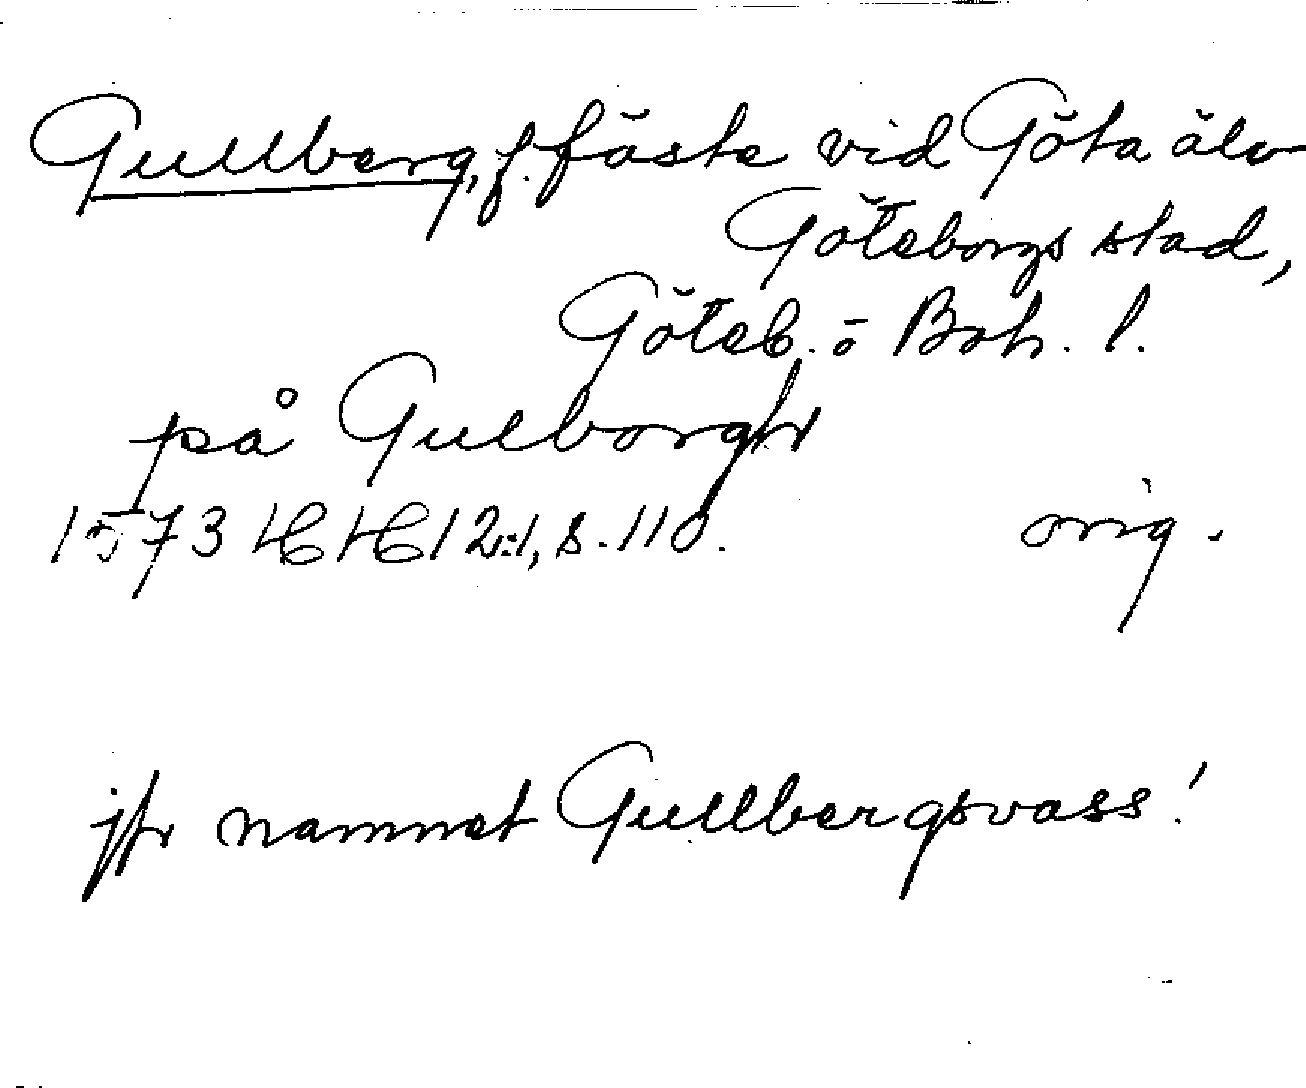 Gullberg, f. fäste vid Göta älv
Göteborgs stad,
Göteb. o Boh. l.
på Gulborgh
1573 HH 12:1, s. 110. orig.
jfr namnet Gullbergsvass!